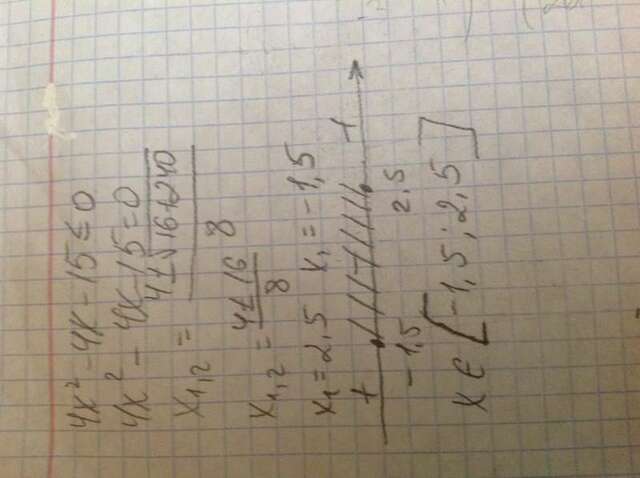 4x² - 4x - 15 ≤ 0
4x² - 4x - 15 = 0
x₁,₂ = (4 ± √(16+240))/8
x₁,₂ = (4 ± 16)/8
x₁ = 2,5 x₁ = -1,5
+ - +
-1,5 2,5
x ∈ [-1,5; 2,5]